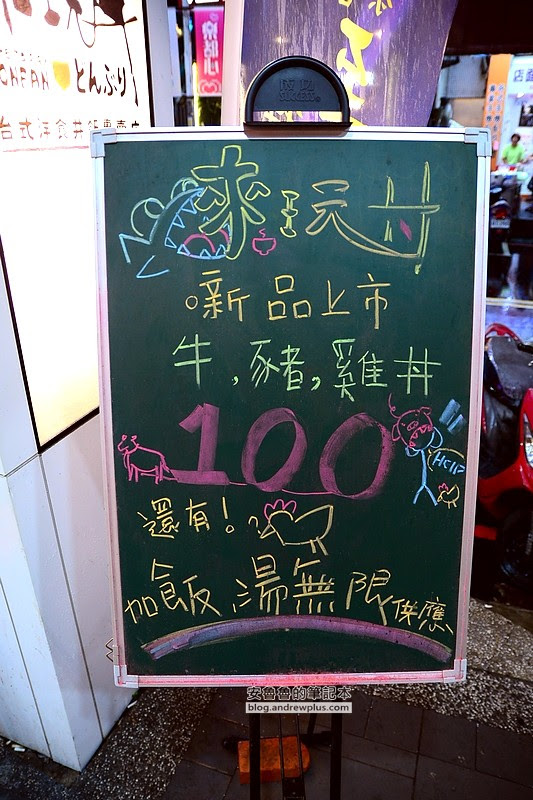 とんぶり
台式洋食丼飯專賣店
SUCCESS
店面
來玩丼
新品上市
牛,豬,雞丼
100
HELP
還有!
加飯 湯無限供應
安魯魯的筆記本
blog.andrewplus.com